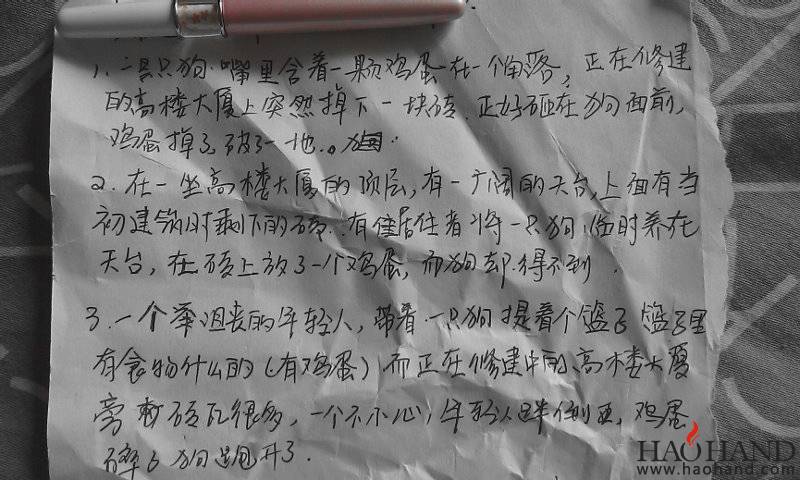 1. 一只狗 嘴里含着一颗鸡蛋在一个角落，正在修建
的高楼大厦上突然掉下一块砖，正好砸在狗面前，
鸡蛋掉了破了一地。
2. 在一坐高楼大厦的顶层，有一广阔的天台，上面有当
初建筑时剩下的砖，有住居住者将一只狗临时养在
天台，在砖上放了一个鸡蛋，而狗却得不到。
3. 一个沮丧的年轻人，带着一只狗提着个篮子 篮子里
有食物什么的（有鸡蛋）而正在修建中的高楼大厦
旁砖瓦很多，一个不小心，年轻人绊倒，鸡蛋
碎了狗跑开了.
HAOHAND
www.haohand.com